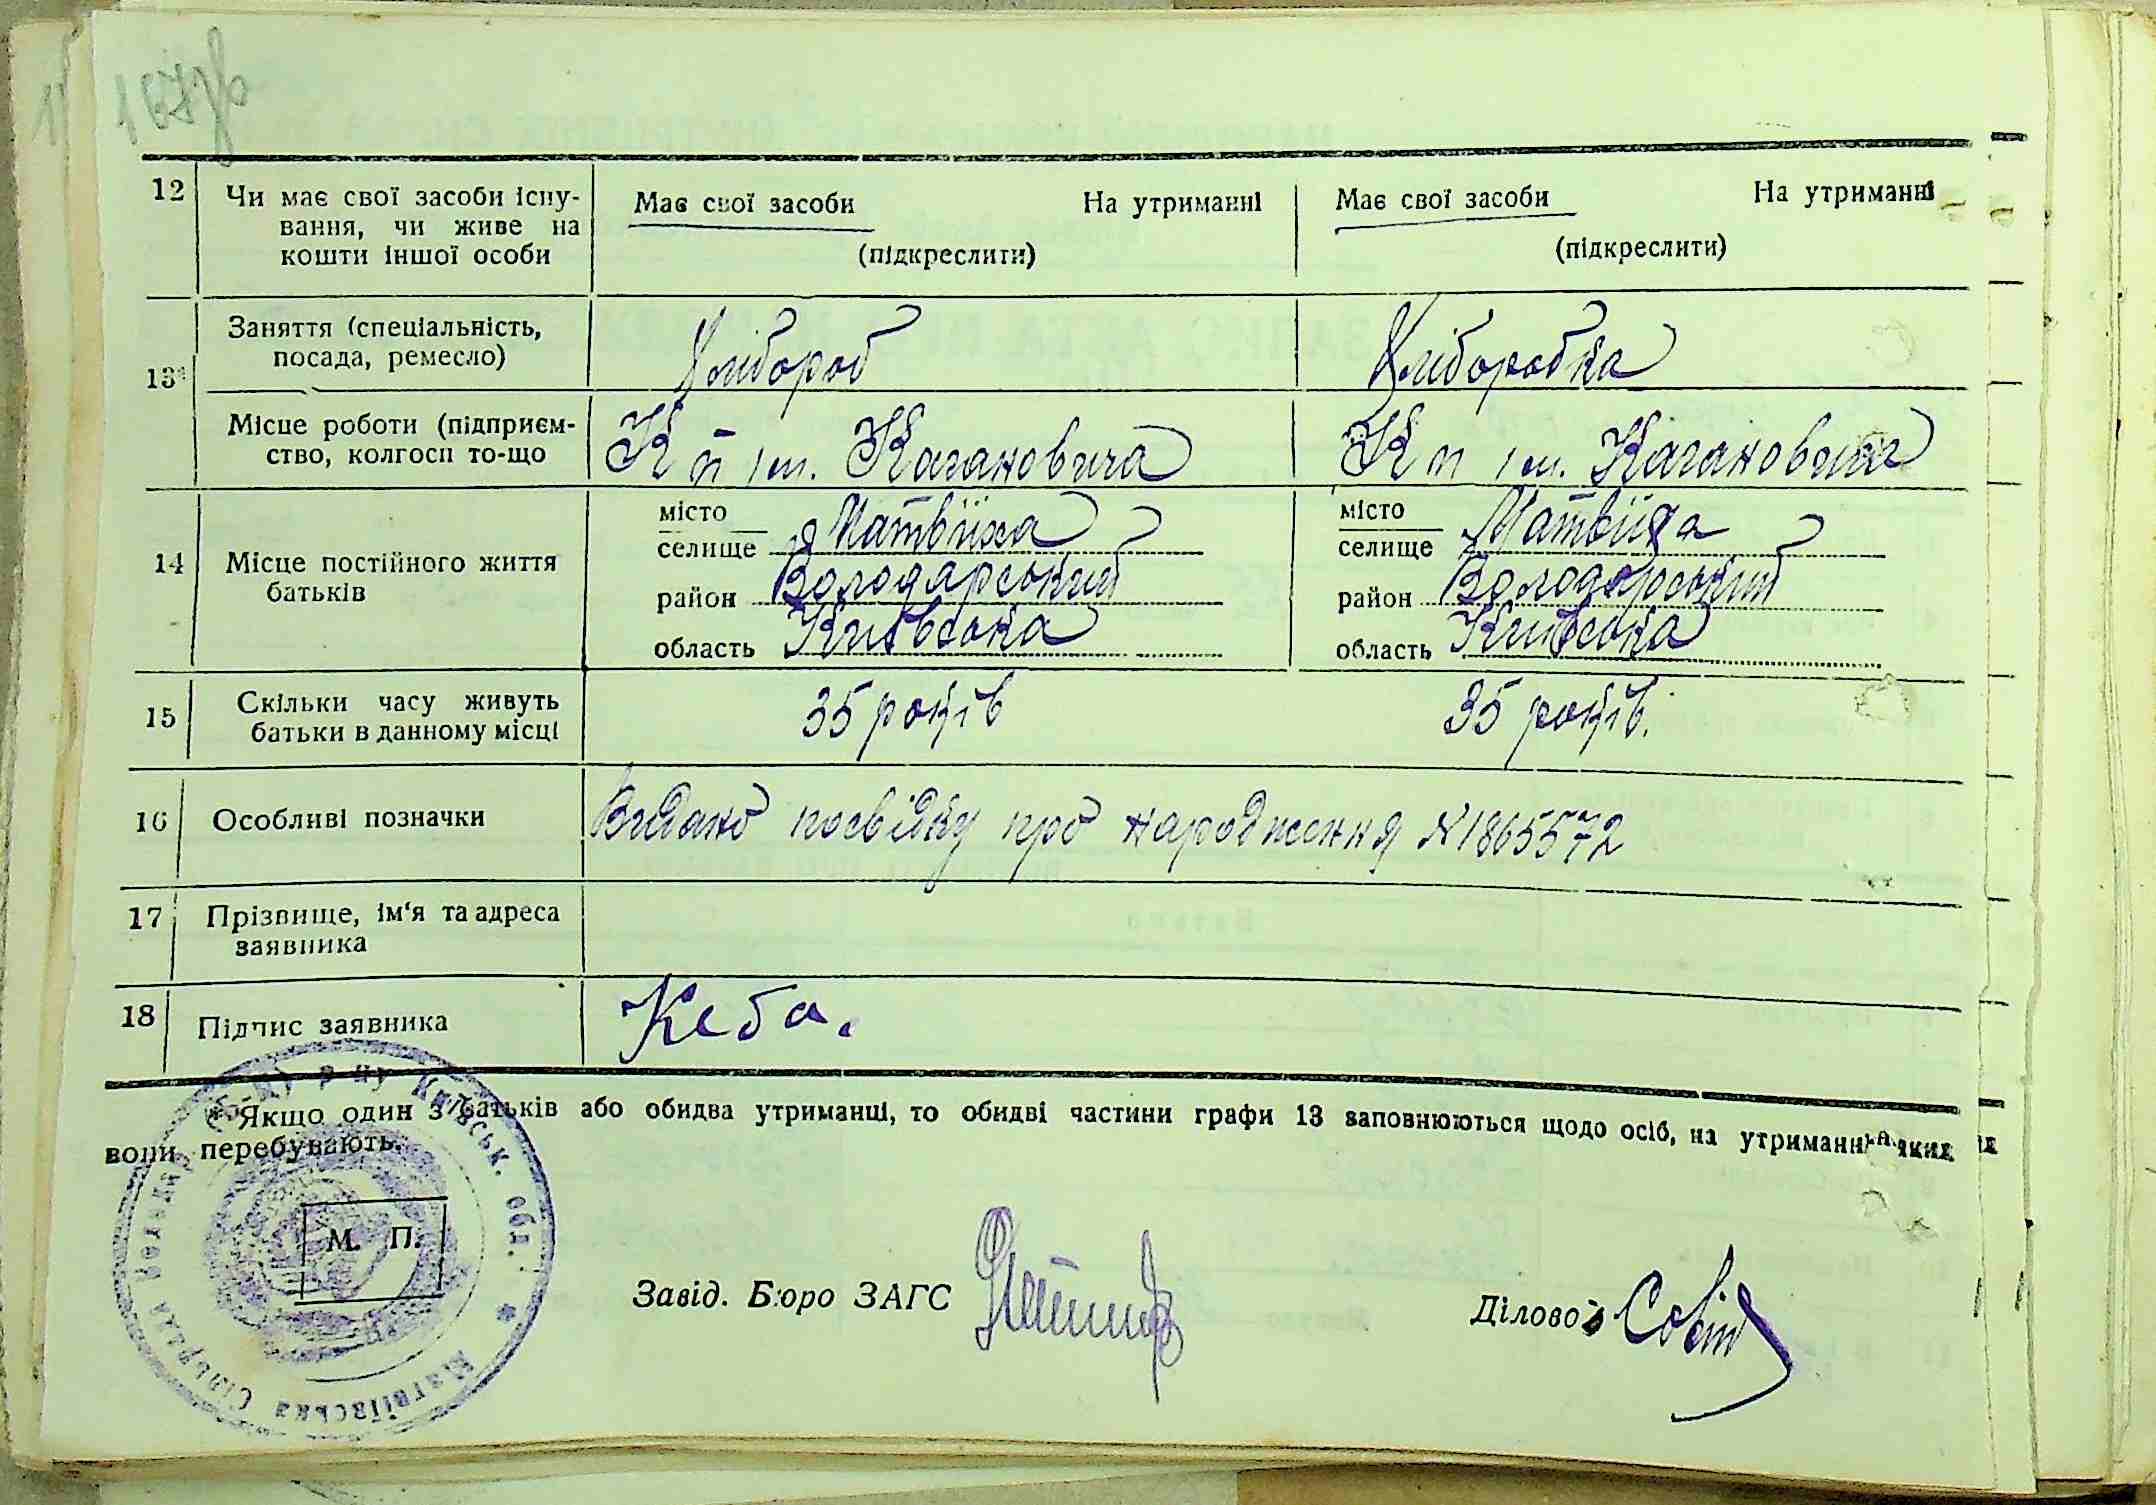 167зв
12 Чи має свої засоби існу- Має свої засоби На утриманні Має свої засоби На утриманні
вання, чи живе на
кошти іншої особи (підкреслити) (підкреслити)
13* Заняття (спеціальність, Хлібороб Хліборобка
посада, ремесло)
Місце роботи (підприєм- Кп ім. Кагановича Кп ім. Кагановича
ство, колгосп то-що
14 Місце постійного життя батьків
місто
селище Матвіїха
район Володарський
область Київська
місто
селище Матвіїха
район Володарський
область Київська
15 Скільки часу живуть 35 років 35 років.
батьки в данному місці
16 Особливі позначки Видано посвідку про народження №1865572
17 Прізвище, ім'я та адреса
заявника
18 Підпис заявника Кеба.
* Якщо один з батьків або обидва утриманці, то обидві частини графи 13 заповнюються щодо осіб, на утриманні яких
вони перебувають.
М. П.
Завід. Бюро ЗАГС
Діловод
Матвіївська Сільрада Володар р-ну Київськ. обл.